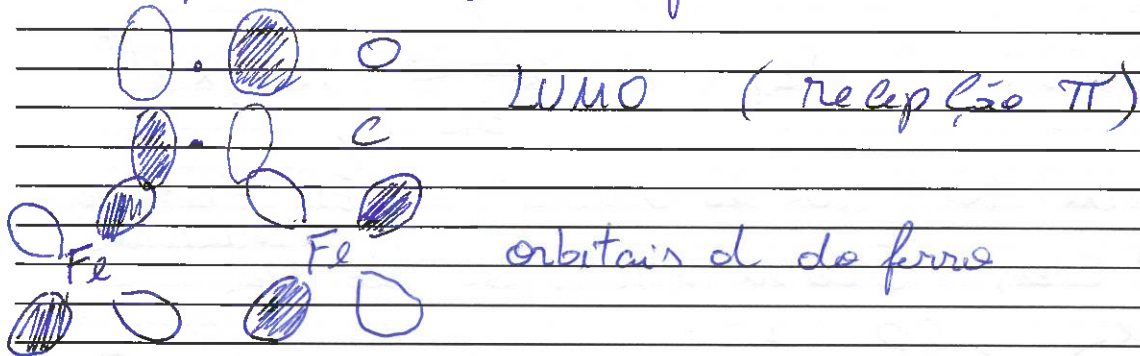 O
LUMO (recepção π)
C
Fe Fe orbitais d do ferro